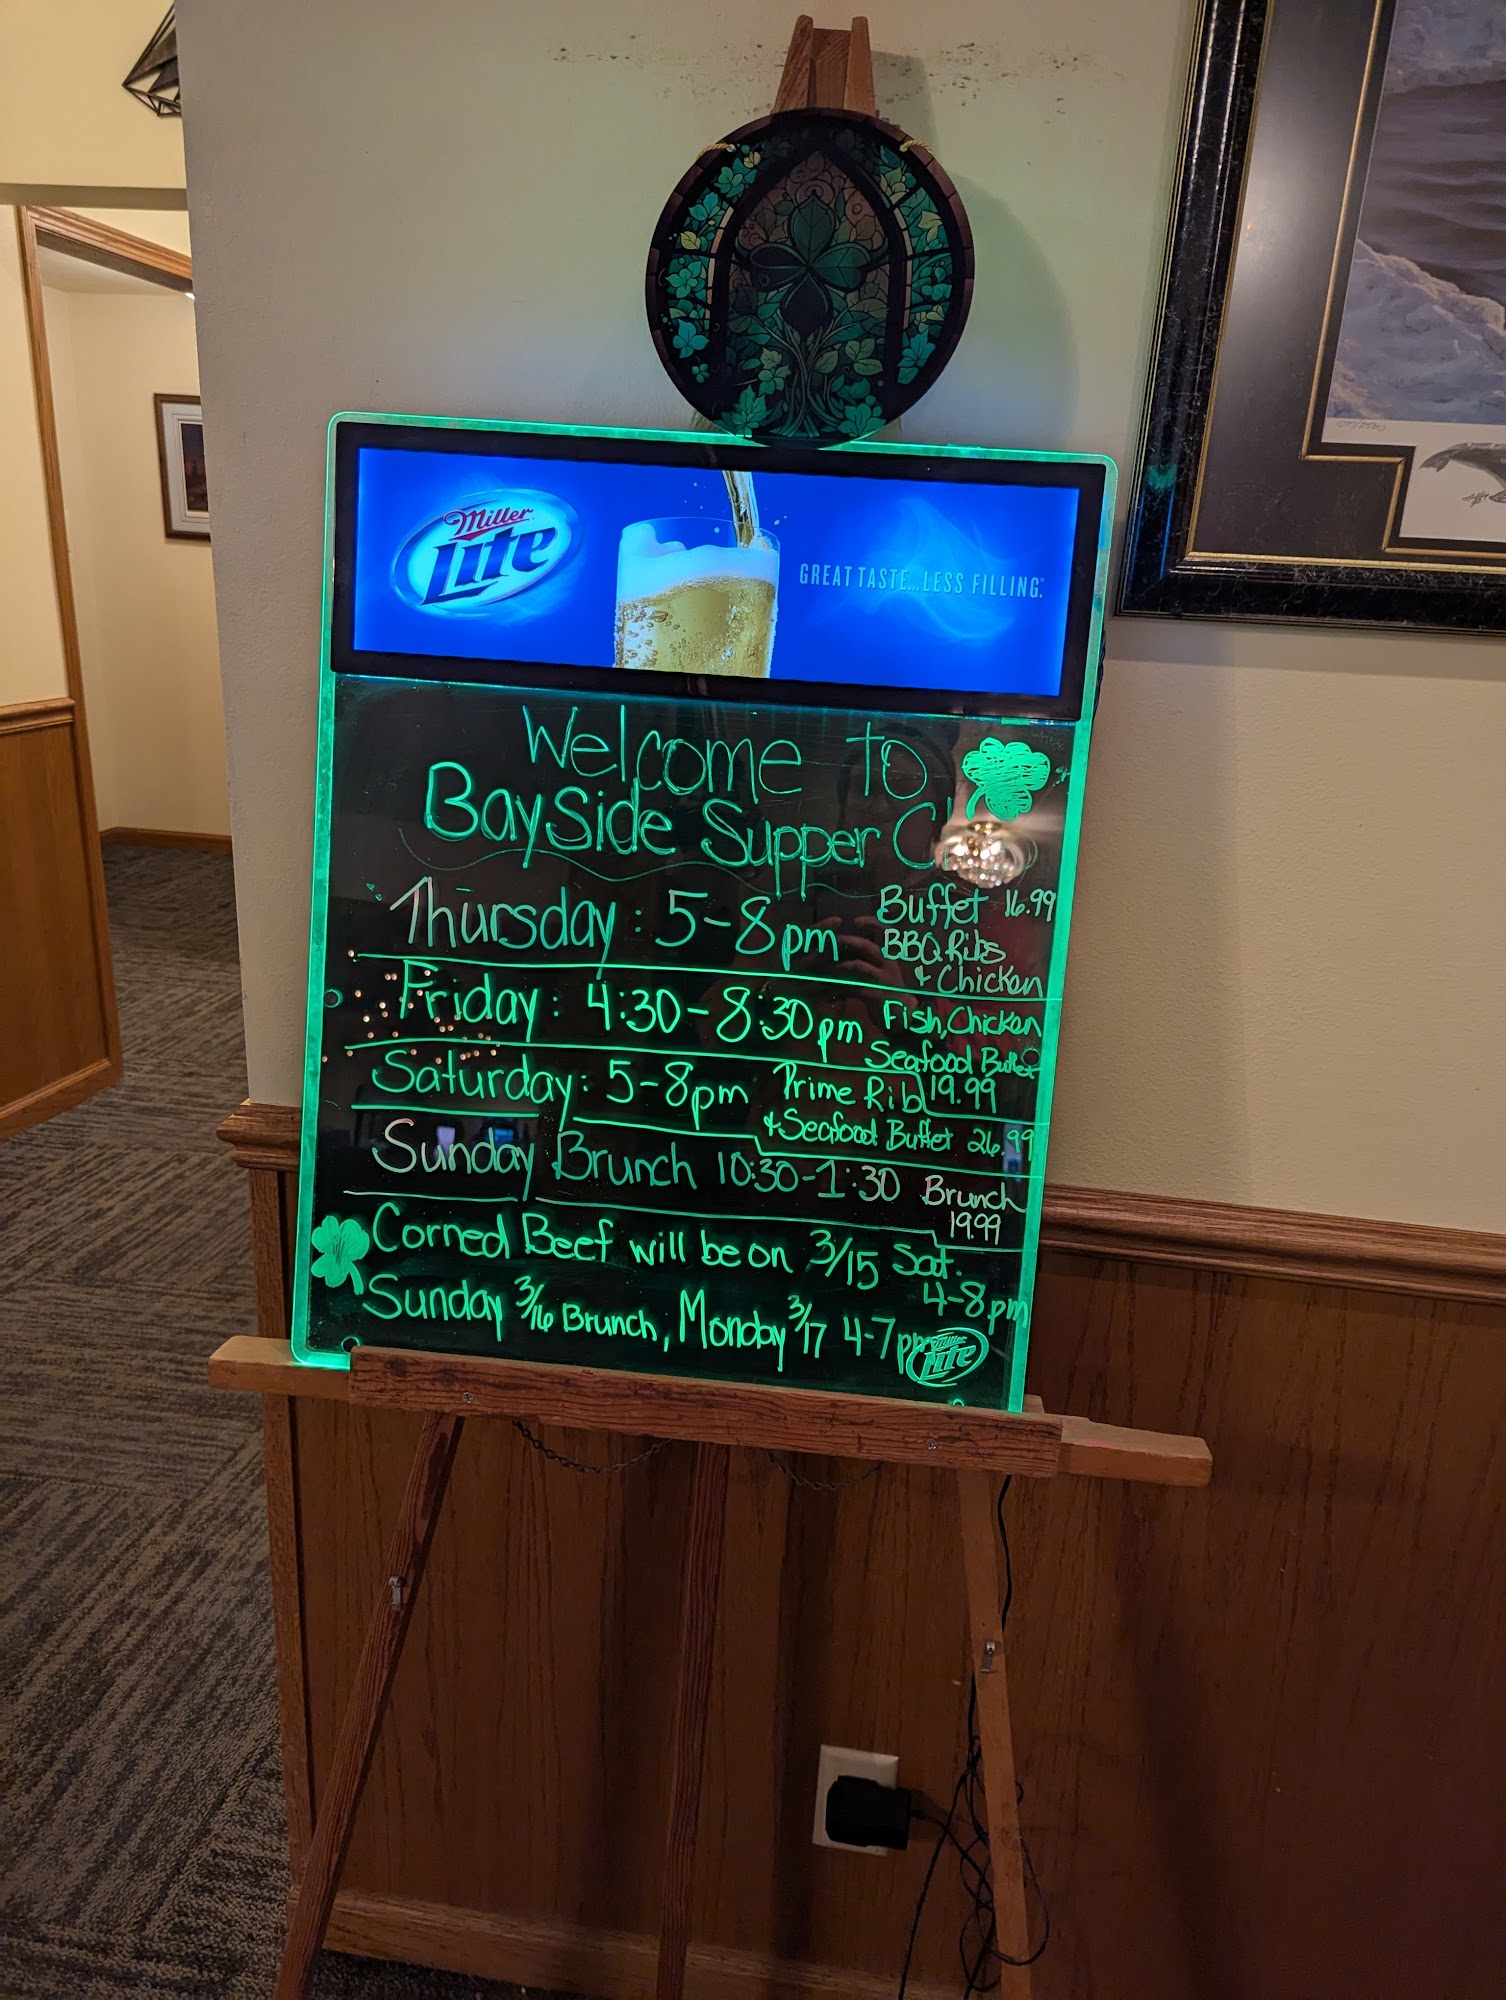 Miller
Lite
GREAT TASTE...LESS FILLING.
Welcome to
BaySide Supper
Thursday: 5-8pm
Buffet 16.99
BBQ Ribs
& Chicken
Friday: 4:30-8:30pm
Fish, Chicken
Seafood Buffet
19.99
Saturday: 5-8pm
Prime Rib
& Seafood Buffet 26.99
Sunday Brunch 10:30-1:30
Brunch
19.99
Corned Beef will be on 3/15 Sat.
4-8pm
Sunday 3/16 Brunch, Monday 3/17 4-7pm
Miller
Lite